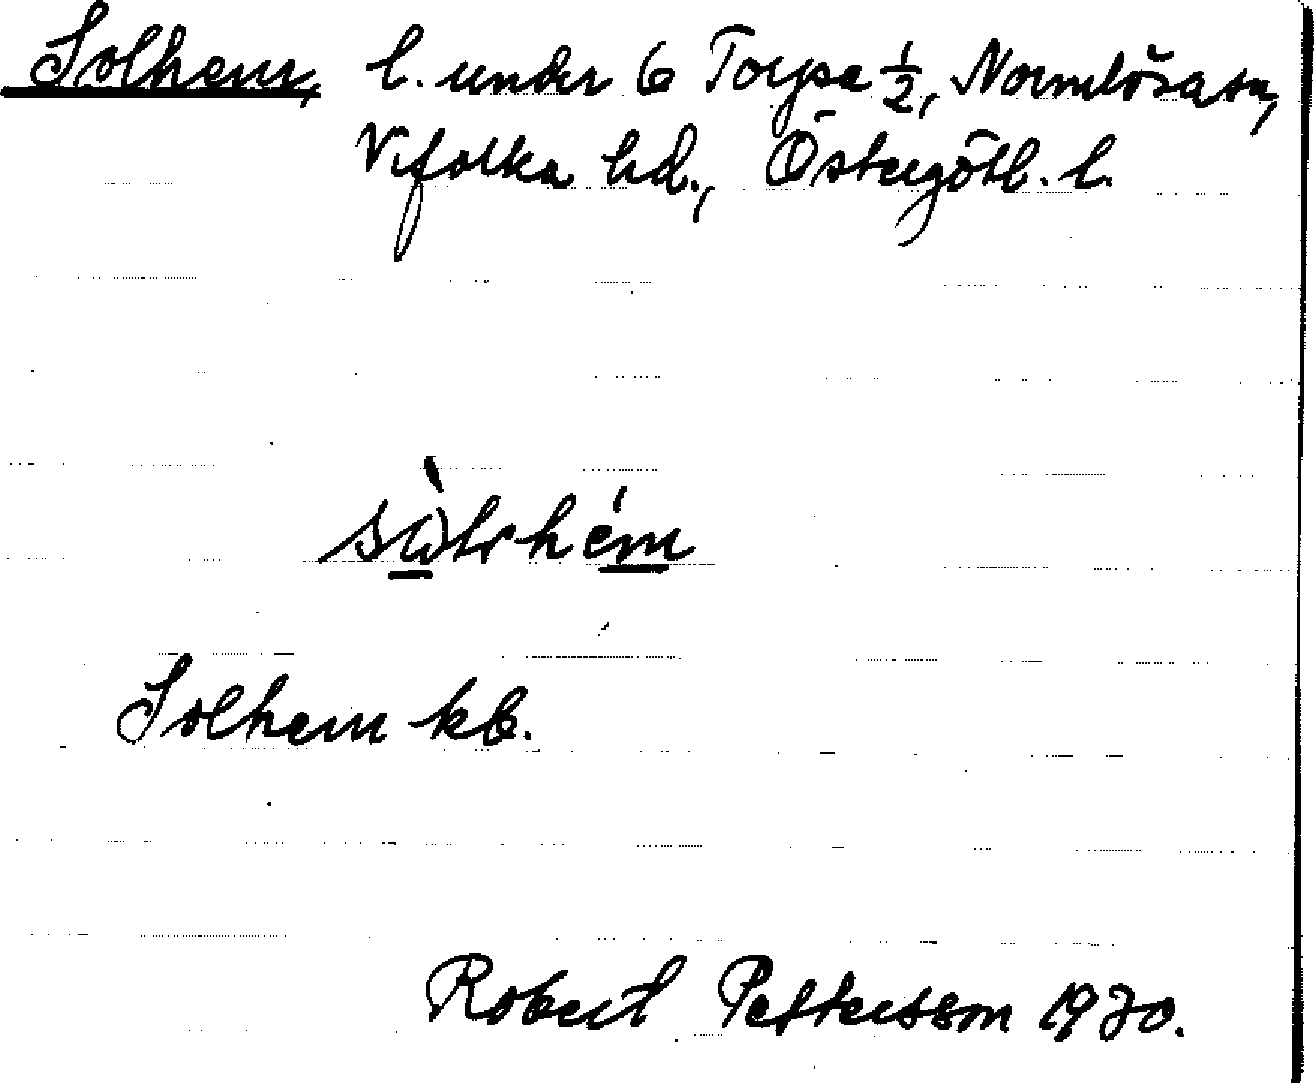 Solhem, l. under 6 Torpa ½, Normlösa sn,
Vifolka hd., Östergötl. l.
Solhem kb.
Robert Pettersson 1930.